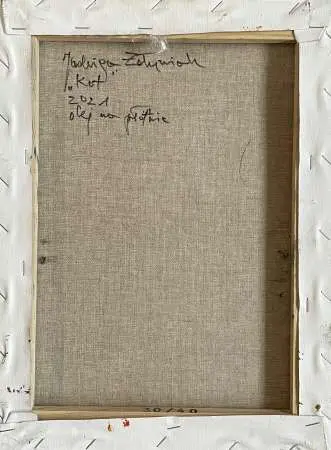 Jadwiga Żołyniak
„Kot"
2021
olej na płótnie
30/40